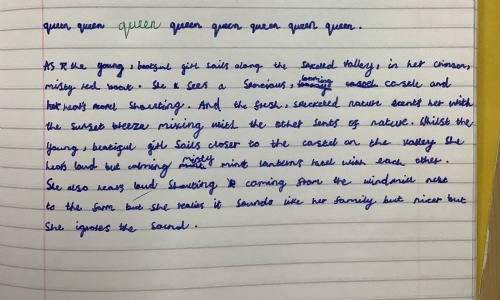 queen queen queen queen queen queen queen queen.
As the young, beatiful girl sails along the valley, in her crimson,
misty red boat. She sees a, looming castle and
hears shouting. And the fresh, speckeled nature scents her with
the sunset breeze mixing with the other sents of nature. Whilst the
young, beatiful girl sails closer to the castel on the valley she
hears loud but calming misty mint lanterns with each other.
She also hears loud shouting coming from the windmill next
to the farm but she realies it sounds like her family but nicer but
she ignores the sound.